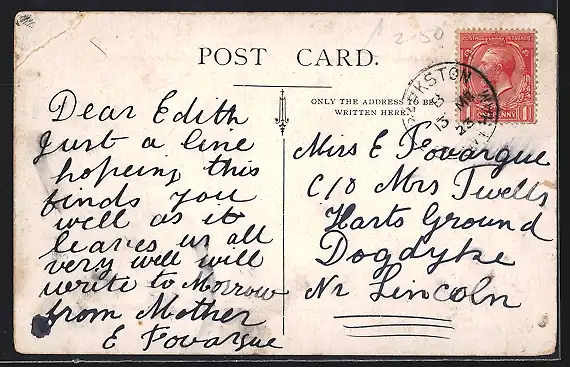 2-50
POST CARD.
ONLY THE ADDRESS TO BE
WRITTEN HERE.
Dear Edith
Just a line
hopeing this
finds you
well as it
leaves us all
very well will
write to Morrow
from Mother
E Fovargue
Miss E Fovargue
C/o Mrs Twells
Harts Ground
Dogdyke
Nr Lincoln
13 MR
23
PENNY